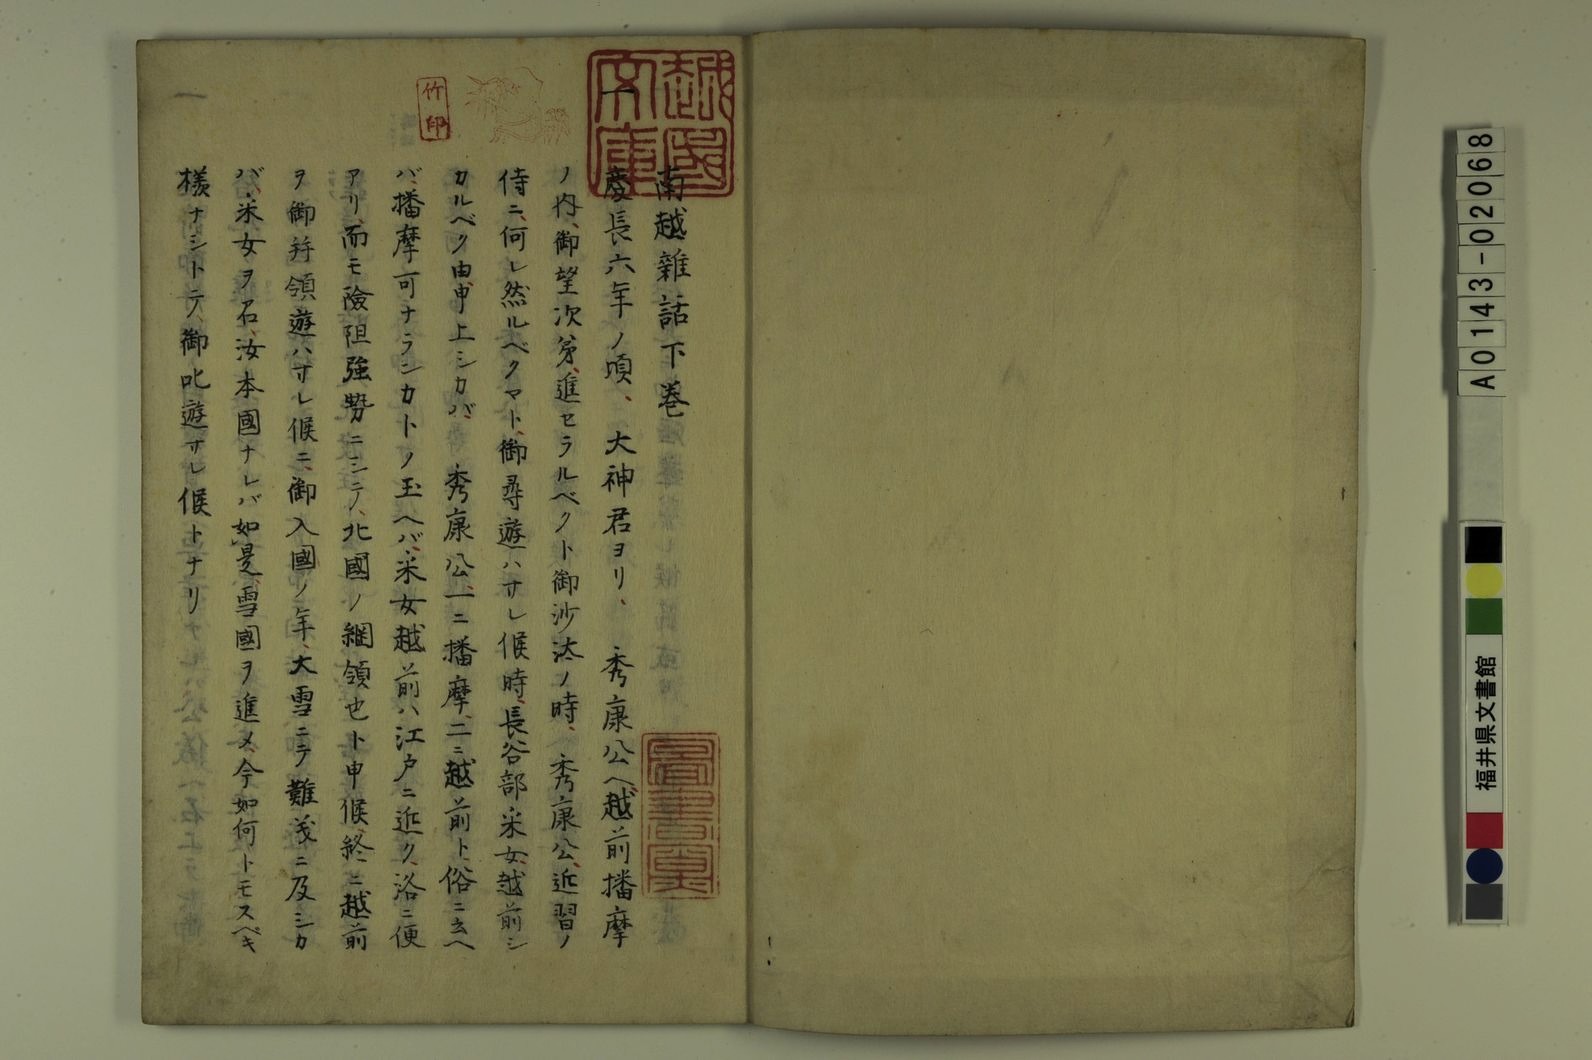 南越雜話下巻
一
慶長六年ノ頃、大神君ヨリ、秀康公ヘ、越前播摩
ノ内、御望次第、進セラルベクト御沙汰ノ時、秀康公、近習ノ
侍ニ、何レ然ルベクマト、御尋遊ハサレ候時、長谷部采女、越前シ
カルベク由申上シカバ、秀康公、一ニ播摩、二ニ越前ト、俗ニ云ヘ
バ、播摩可ナラシカトノ玉ヘバ、采女越前ハ江戸ニ近ク、洛ニ便
アリ、而モ險阻強勢ニシテ、北國ノ綱領也ト申候、終ニ越前
ヲ御拜領遊ハサレ候ニ、御入國ノ年、大雪ニテ難義ニ及シカ
バ、采女ヲ召、汝本國ナレバ如是、雪國ヲ進メ今如何トモスベキ
様ナシトテ、御叱遊サレ候トナリ
越國文庫
竹印
福井県文書館
A0143-02068